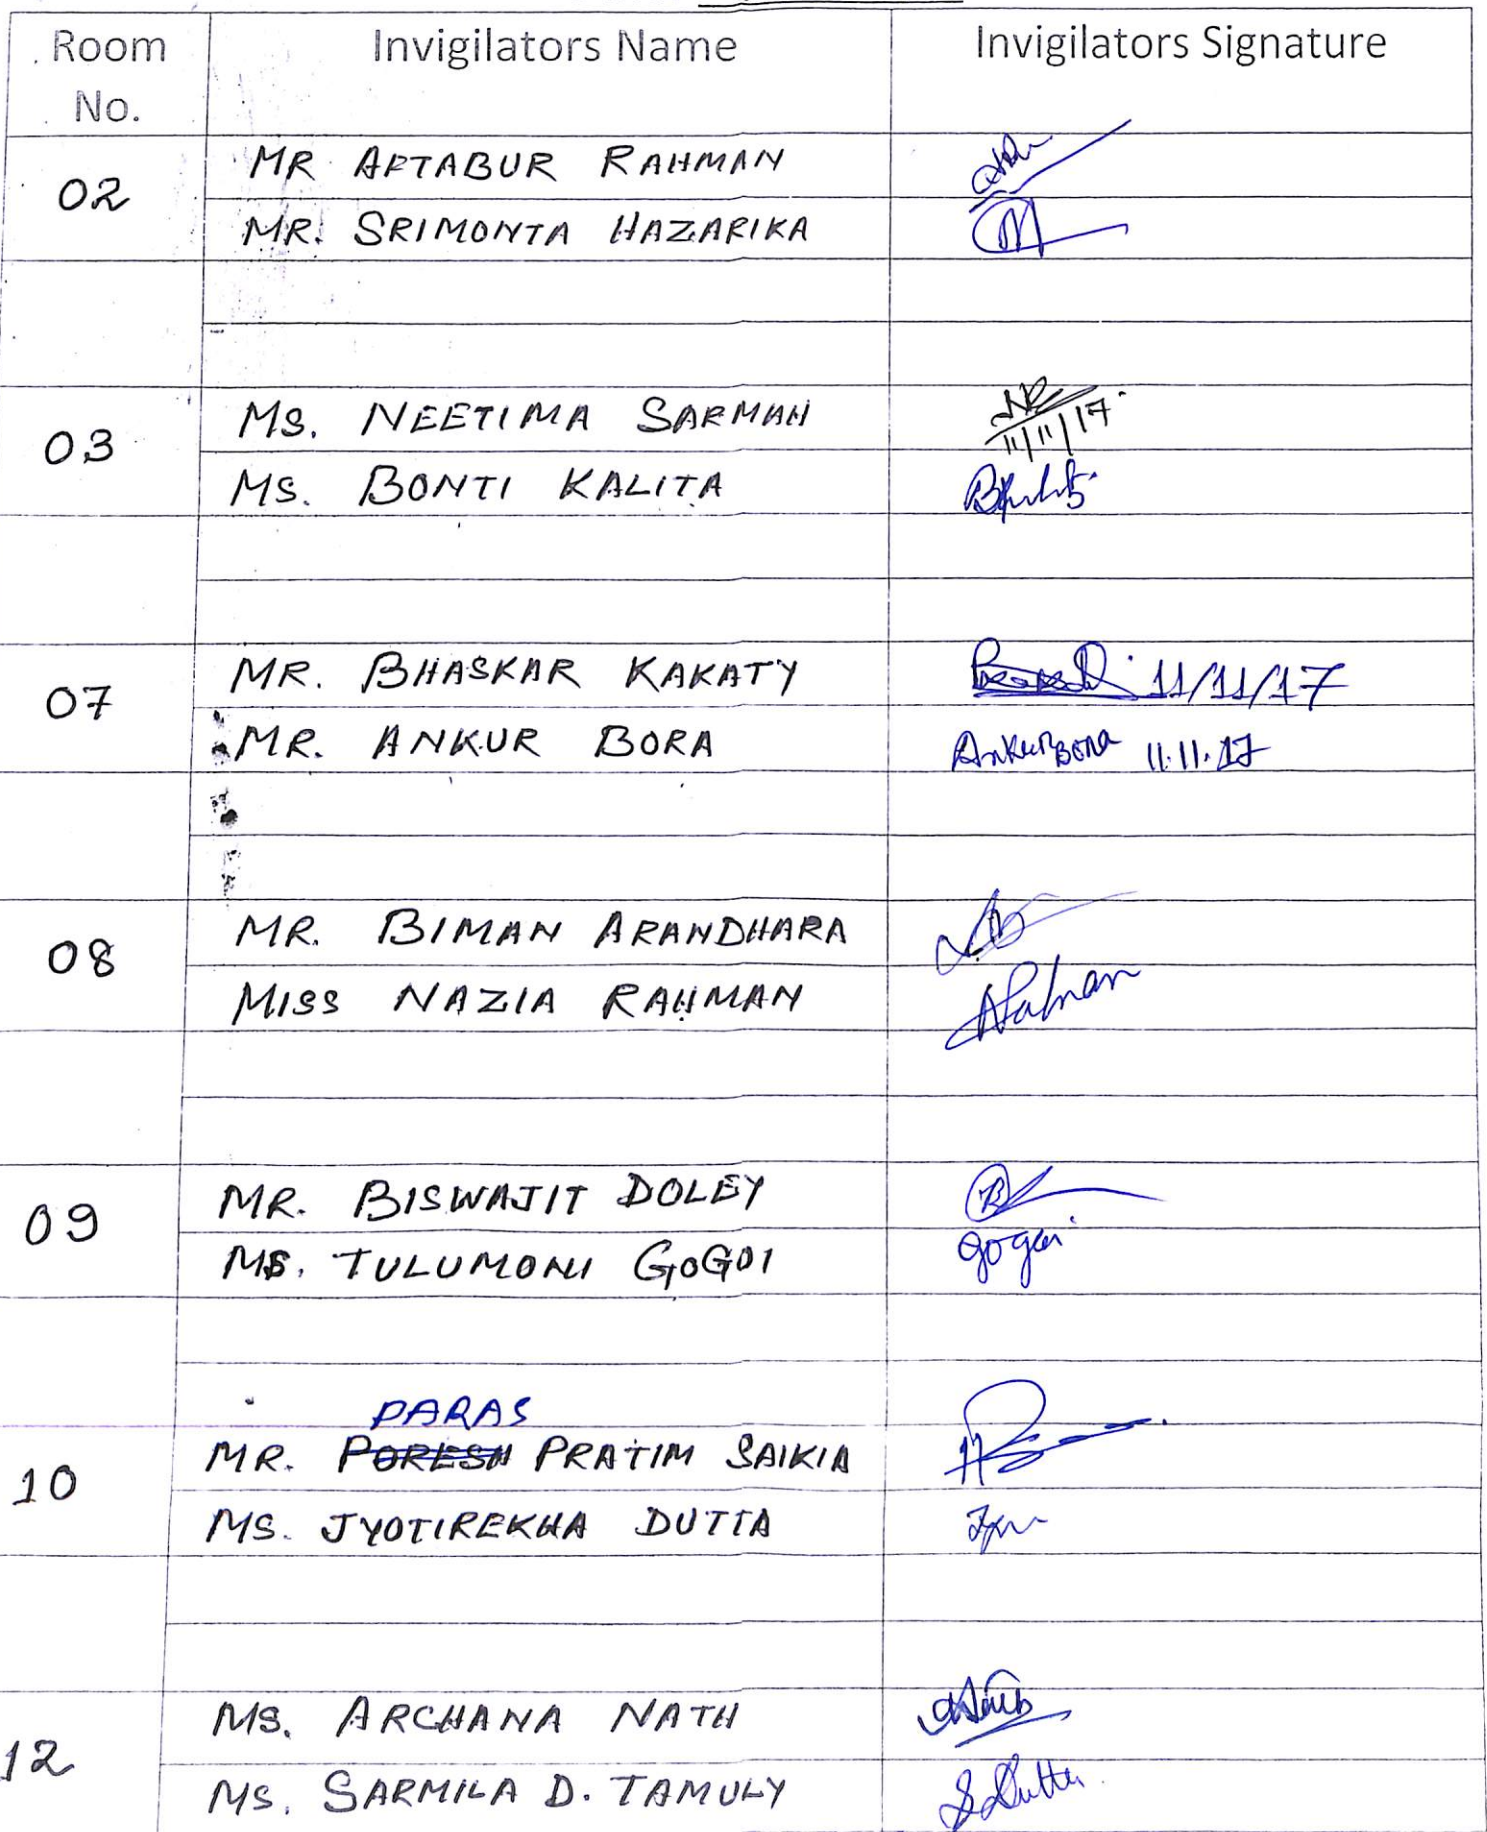 Room No. Invigilators Name Invigilators Signature
02 MR. AFTABUR RAHMAN
MR. SRIMONTA HAZARIKA
03 MS. NEETIMA SARMAH 11/11/17
MS. BONTI KALITA
07 MR. BHASKAR KAKATY 11/11/17
MR. ANKUR BORA Ankur Bora 11.11.17
08 MR. BIMAN ARANDHARA
MISS NAZIA RAHMAN NRahman
09 MR. BISWAJIT DOLEY
MS. TULUMONI GOGOI gogoi
PARAS
10 MR. PORESH PRATIM SAIKIA
MS. JYOTIREKHA DUTTA
12 MS. ARCHANA NATH
MS. SARMILA D. TAMULY SDutta